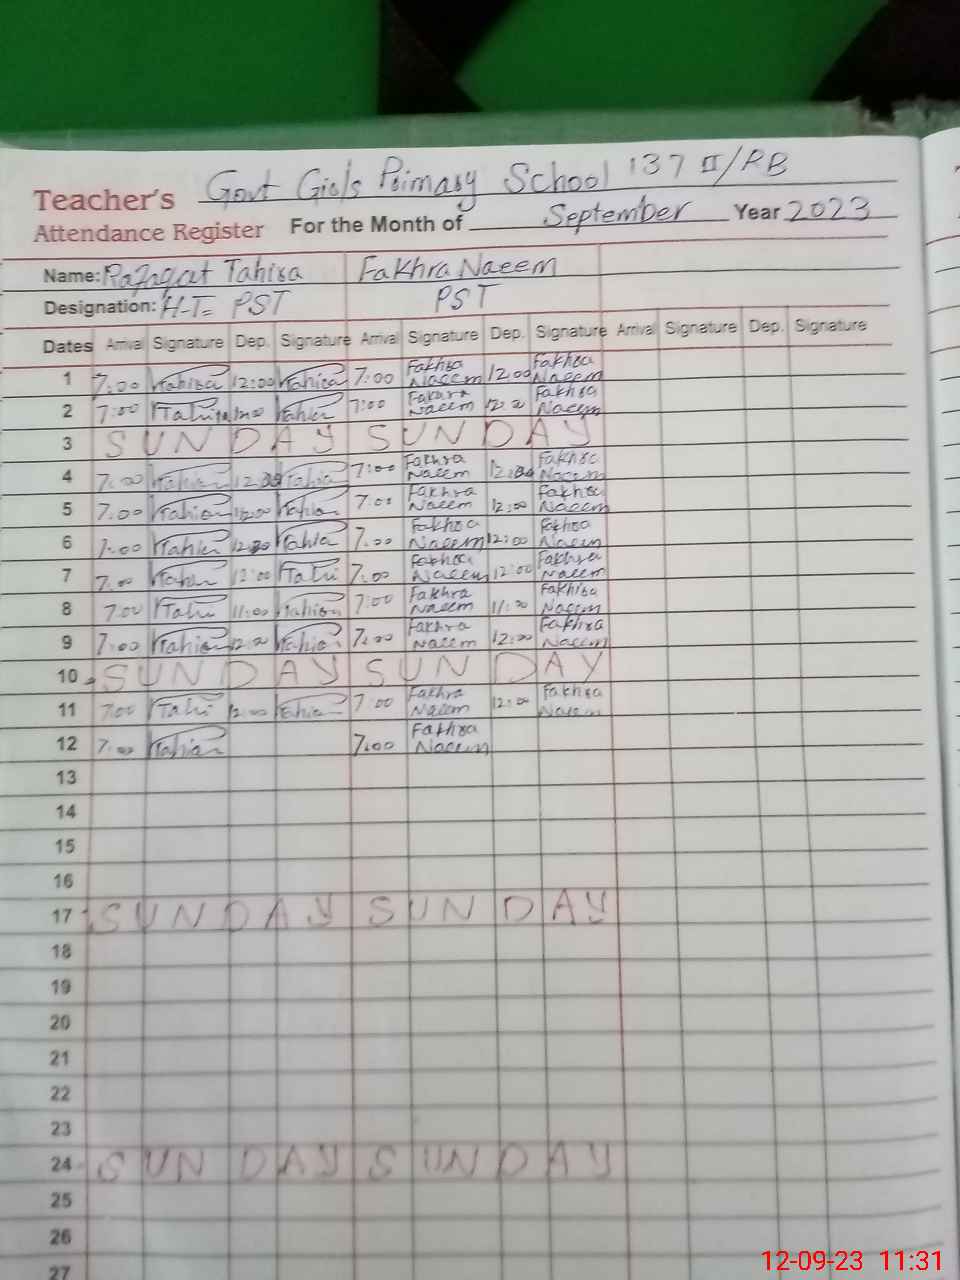 Teacher's Govt Girls Primary School 137 II/RB
Attendance Register For the Month of September Year 2023
Name: Tahira Fakhra Naeem
Designation: H-T= PST PST
Dates Arrival Signature Dep. Signature Arrival Signature Dep. Signature Arrival Signature Dep. Signature
1 7:00 Tahira 12:00 Tahira 7:00 Fakhra Naeem 12:00 Fakhra Naeem
2 7:00 Tahira 7:00 Fakhra Naeem Fakhra Naeem
3 SUNDAY SUNDAY
4 7:00 Tahira Tahira 7:00 Fakhra Naeem Fakhra Naeem
5 7:00 Tahira 12:00 Tahira 7:00 Fakhra Naeem 12:00 Fakhra Naeem
6 7:00 Tahira Tahira 7:00 Fakhra Naeem 12:00 Fakhra Naeem
7 7:00 Tahira 12:00 Tahi 7:00 Fakhra Naeem 12:00 Fakhra Naeem
8 7:00 Tahi 11:00 Tahira 7:00 Fakhra Naeem 11:00 Fakhra Naeem
9 7:00 Tahira Tahira 7:00 Fakhra Naeem 12:00 Fakhra Naeem
10 SUNDAY SUNDAY
11 7:00 Tahi 12:00 Tahira 7:00 Fakhra Naeem 12:00 Fakhra Naeem
12 7:00 Tahira 7:00 Fakhra Naeem
13
14
15
16
17 SUNDAY SUNDAY
18
19
20
21
22
23
24 SUNDAY SUNDAY
25
26
27
12-09-23 11:31